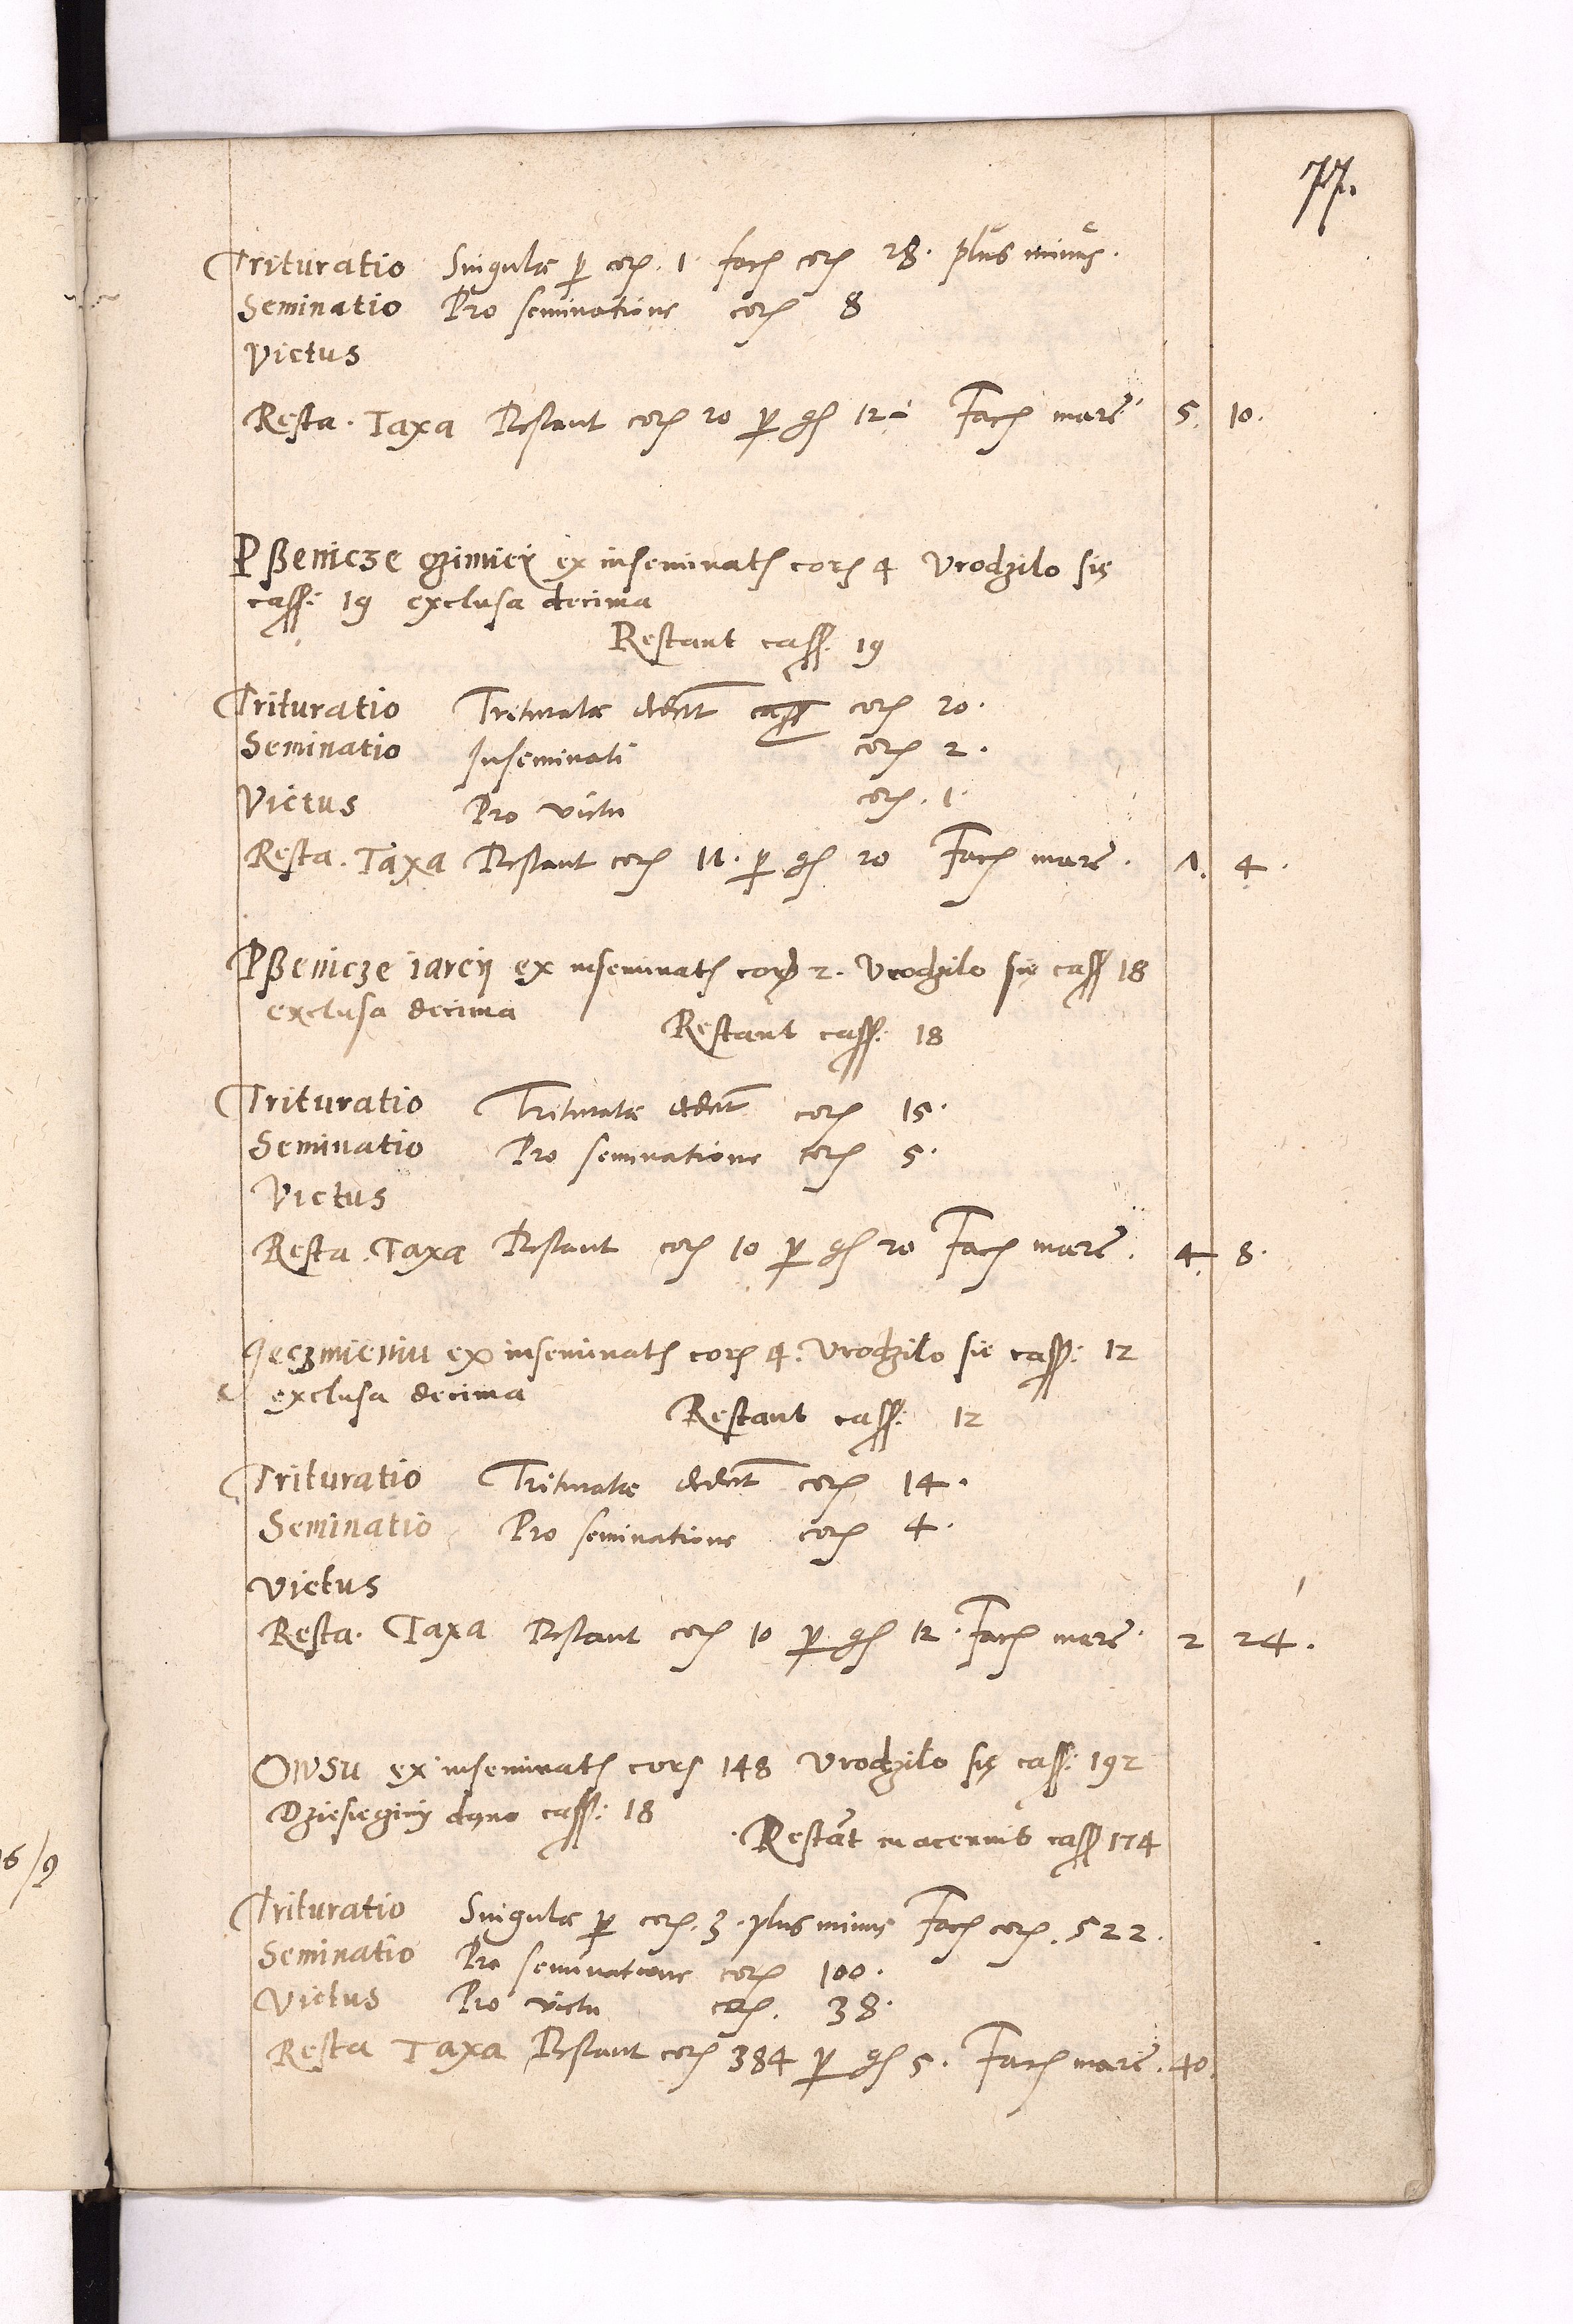 77.
Trituratio Singulæ p corŋ. 1 facŋ corŋ 28. plus minus.
Seminatio Pro seminatione corŋ 8
Victus
Resta. Taxa Restant corŋ 20 p gŋ 12 Facŋ marc. 5. 10.
Pßenicze ozimiey ex inseminatŋ corŋ 4 Vrodzilo się
cass: 19 exclusa decima
Restant cass. 19
Trituratio Trituratæ dedert cass corŋ 20.
Seminatio Inseminati corŋ 2.
Victus Pro victu corŋ. 1.
Resta. Taxa Restant corŋ p gŋ 20 Facŋ marc. 4.
Pßenicze iarey ex inseminatŋ corŋ 2. Vrodzilo się cass 18
exclusa decima
Restant cass: 18
Trituratio Trituratæ dedert corŋ 15.
Seminatio Pro seminatione corŋ 5.
Victus
Resta. Taxa Restant corŋ 10 p gŋ 20 Facŋ marc. 4. 8.
Jeczmieniu ex inseminatŋ corŋ 4. Vrodzilo sie cass: 12
exclusa decima
Restant cass: 12
Trituratio Trituratæ dedert corŋ 14.
Seminatio Pro seminatione corŋ 4.
Victus
Resta. Taxa Restant corŋ 10 p gŋ 12. Facŋ marc. 2 24.
Owsu ex inseminatŋ corŋ 148 Vrodzilo się cass: 192
Dziesięciny dano cass: 18
Restat in acervis cass 174
Trituratio Singulæ p corŋ. 3. plus minus Facŋ corŋ. 522.
Seminatio Pro seminatione corŋ 100.
Victus Pro victu corŋ. 38.
Resta Taxa Restant corŋ 384 p gŋ 5. Facŋ marc. 40.